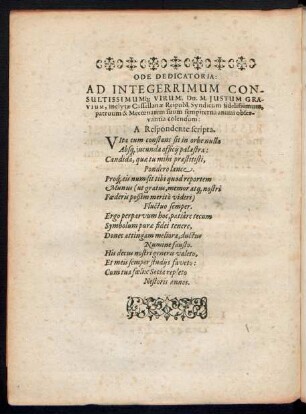 ODE DEDICATORIA:
AD INTEGERRIMUM CON-
SULTISSIMUMq; VIRUM, Dn. M. JUSTUM GRA-
VIUM, inclytæ Cassellanæ Reipubl. Syndicum fidelissimum,
patronum & Mecœnatem suum sempiterna animi obser-
vantia colendum:
A Respondente scripta.
VIta cum constans sit in orbe nulla
Absq, jucunda assiciis palæstra:
Candida, qua tu mihi præstitisti,
Pondero lance.
Proq, iis num sit tibi quod repertem
Munus (ut gratus, memor atq, nostri
Fœderis possim meritò videri)
Fluctuo semper.
Ergo perparvum hoc, patiare tecum
Symbolum puræ fidei tenere,
Donec attingam meliora, ductus
Numine fausto.
His decus nostri generis valeto,
Et meis semper studiis faveto:
Cum tua fœlix Socia repleto
Nestoris annos.